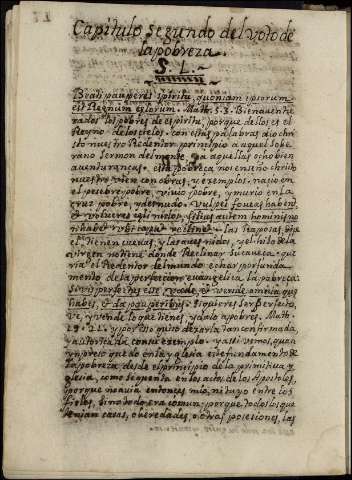 Capitulo segundo del voto de
la pobreza.
S. I.
Beati pauperes spiritu, quoniam ipsorum
est Regnum cælorum. Math. 5. 3. Bienauentu
rados los pobres de espiritu, porque dellos es el
Reyno de los cielos. con estas palabras dio chris
to nuestro Redentor principio a aquel sobe
rano Sermon del monte, a aquellas ocho bien
auenturanças. esta pobreza nos enseño christo
nuestro bien con obras, y exemplos. nacio en
el pesebre pobre, viuio pobre, y murio en la
cruz pobre, y desnudo. Vulpes foueas habent,
et volucres cæli nidos, filius autem hominis no
n habet vbi caput reclinet. las Raposas, dize
el, tienen cueuas, y las aues nidos, y el hijo de la
virgen no tiene donde Reclinar su caueça. que
ria el Redentor del mundo echar por funda
mento de la perfeccion euangelica la pobreça.
Si vis perfectus esse, vade, et vende omnia quæ
habes, et da pauperibus. Si quieres ser perfecto,
ve, y vende lo que tienes, y dalo a pobres. Math.
19. 21. y por esso quiso dexarla tan confirmada,
y autoriçada con su exemplo. y assi vemos, quan
impreso quedo en la yglesia este fundamento de
la pobreza, desde el principio de la primitiua y
glesia, como se quenta en los actos de los Apostoles,
porque no auia entonces mio, ni tuyo entre los
fieles, sino todo era comun: porque todos los que
tenian casas, o heredades, o otras posesiones, las